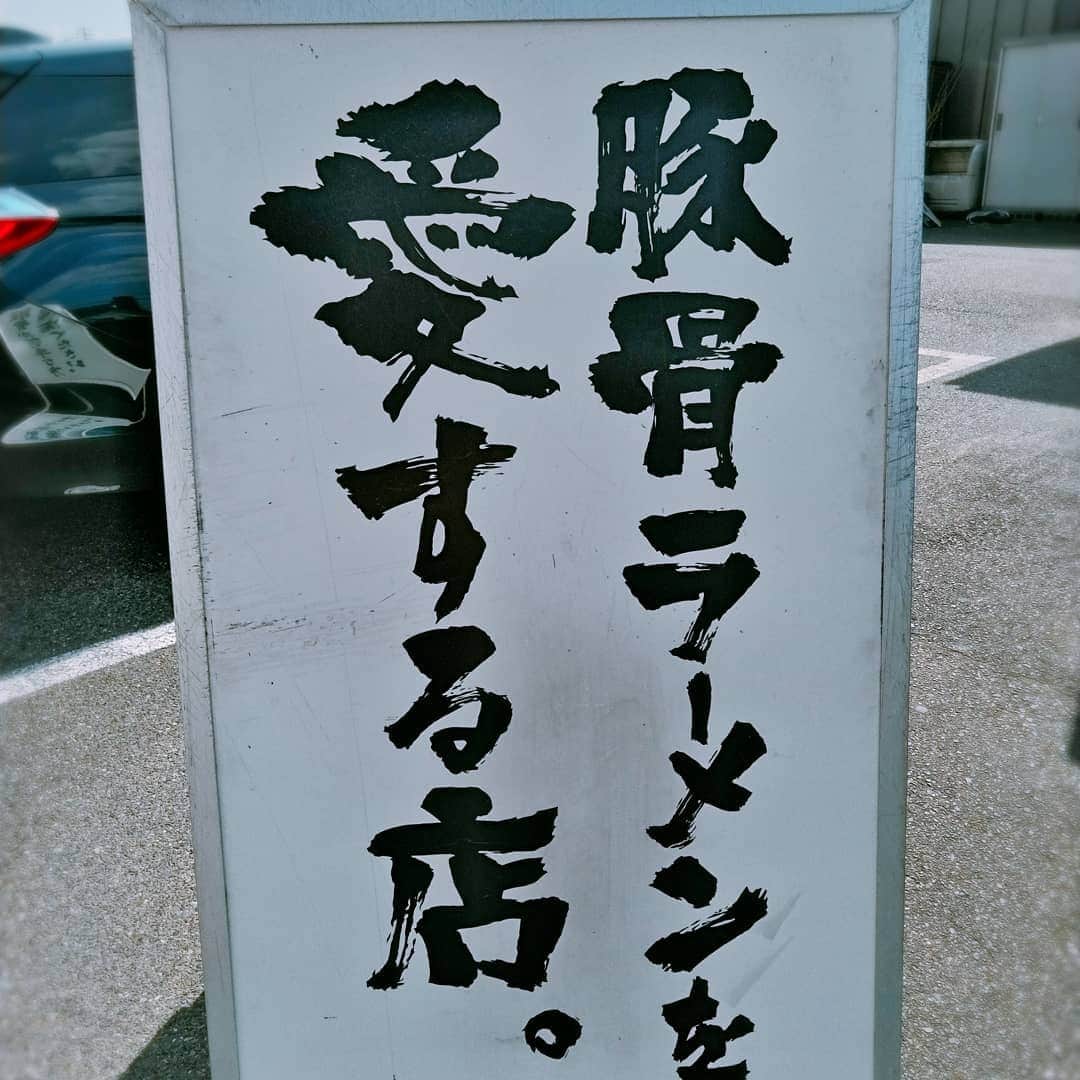 豚骨ラーメンを
愛する店。